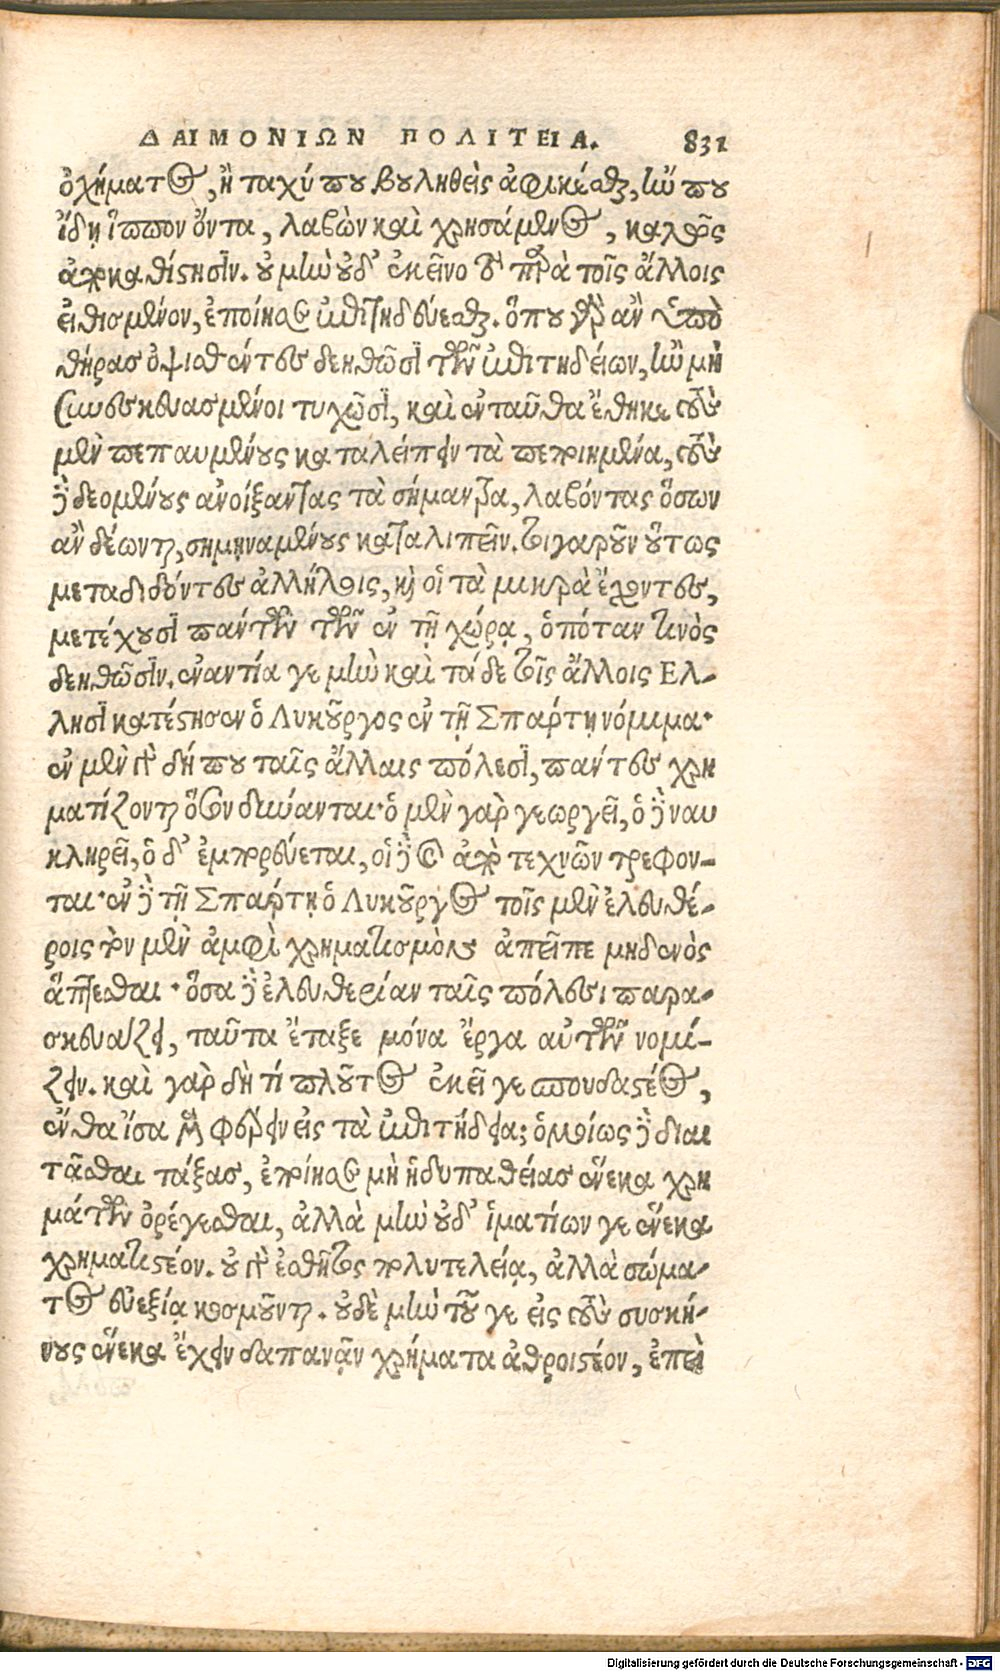 ΔΑΙΜΟΝΙΩΝ ΠΟΛΙΤΕΙΑ. 831
ὀχήματος, ἢ ταχύ που βουληθεὶς ἀφικέσθαι, ἢν που
ἴδῃ ἵππον ὄντα, λαβὼν καὶ χρησάμενος, καλῶς
ἀποκαθίστησιν. οὐ μὴν οὐδ᾽ ἐκεῖνο τὸ παρὰ τοῖς ἄλλοις
εἰθισμένον, ἐποίησεν ἐπιτηδεύεσθαι. ὅπου γὰρ ἂν ὑπὸ
θήρας ὀψισθέντες δεηθῶσι τῶν ἐπιτηδείων, ἢν μὴ
συνεσκευασμένοι τυχῶσι, καὶ ἐνταῦθα ἔθηκε τοὺς
μὲν πεπαυμένους καταλείπειν τὰ πεποιημένα, τοὺς
δὲ δεομένους ἀνοίξαντας τὰ σήμαντρα, λαβόντας ὅσων
ἂν δέωνται, σημηναμένους καταλιπεῖν. τοιγαροῦν οὕτως
μεταδιδόντες ἀλλήλοις, καὶ οἱ τὰ μικρὰ ἔχοντες,
μετέχουσι πάντων τῶν ἐν τῇ χώρᾳ, ὁπόταν τινὸς
δεηθῶσιν. ἐναντία γε μὴν καὶ τάδε τοῖς ἄλλοις Ελ-
λησι κατέστησεν ὁ Λυκοῦργος ἐν τῇ Σπάρτῃ νόμιμα·
ἐν μὲν γὰρ δήπου ταῖς ἄλλαις πόλεσι, πάντες χρη
ματίζονται ὅσον δύνανται· ὁ μὲν γὰρ γεωργεῖ, ὁ δὲ ναυ
κληρεῖ, ὁ δ᾽ ἐμπορεύεται, οἱ δὲ καὶ ἀπὸ τεχνῶν τρέφον-
ται· ἐν δὲ τῇ Σπάρτῃ ὁ Λυκοῦργος τοῖς μὲν ἐλευθέ-
ροις τῶν μὲν ἀμφὶ χρηματισμὸν ἀπεῖπε μηδενὸς
ἅπτεσθαι· ὅσα δὲ ἐλευθερίαν ταῖς πόλεσι παρα-
σκευάζει, ταῦτα ἔταξε μόνα ἔργα αὐτῶν νομί-
ζειν. καὶ γὰρ δὴ τί πλοῦτος ἐκεῖ γε σπουδαστέος,
ἔνθα ἴσα μὲν φέρειν εἰς τὰ ἐπιτήδεια; ὁμοίως δὲ διαι
τᾶσθαι τάξας, ἐποίησε μὴ ἡδυπαθείας ἕνεκα χρη
μάτων ὀρέγεσθαι, ἀλλὰ μὴν οὐδ᾽ ἱματίων γε ἕνεκα
χρηματιστέον. οὐ γὰρ ἐσθῆτος πολυτελείᾳ, ἀλλὰ σώμα-
τος εὐεξίᾳ κοσμοῦνται. οὐδὲ μὴν τοῦ γε εἰς τοὺς συσκή-
νους ἕνεκα ἔχειν δαπανᾷν χρήματα ἀθροιστέον, ἐπεὶ
Digitalisierung gefördert durch die Deutsche Forschungsgemeinschaft - DFG